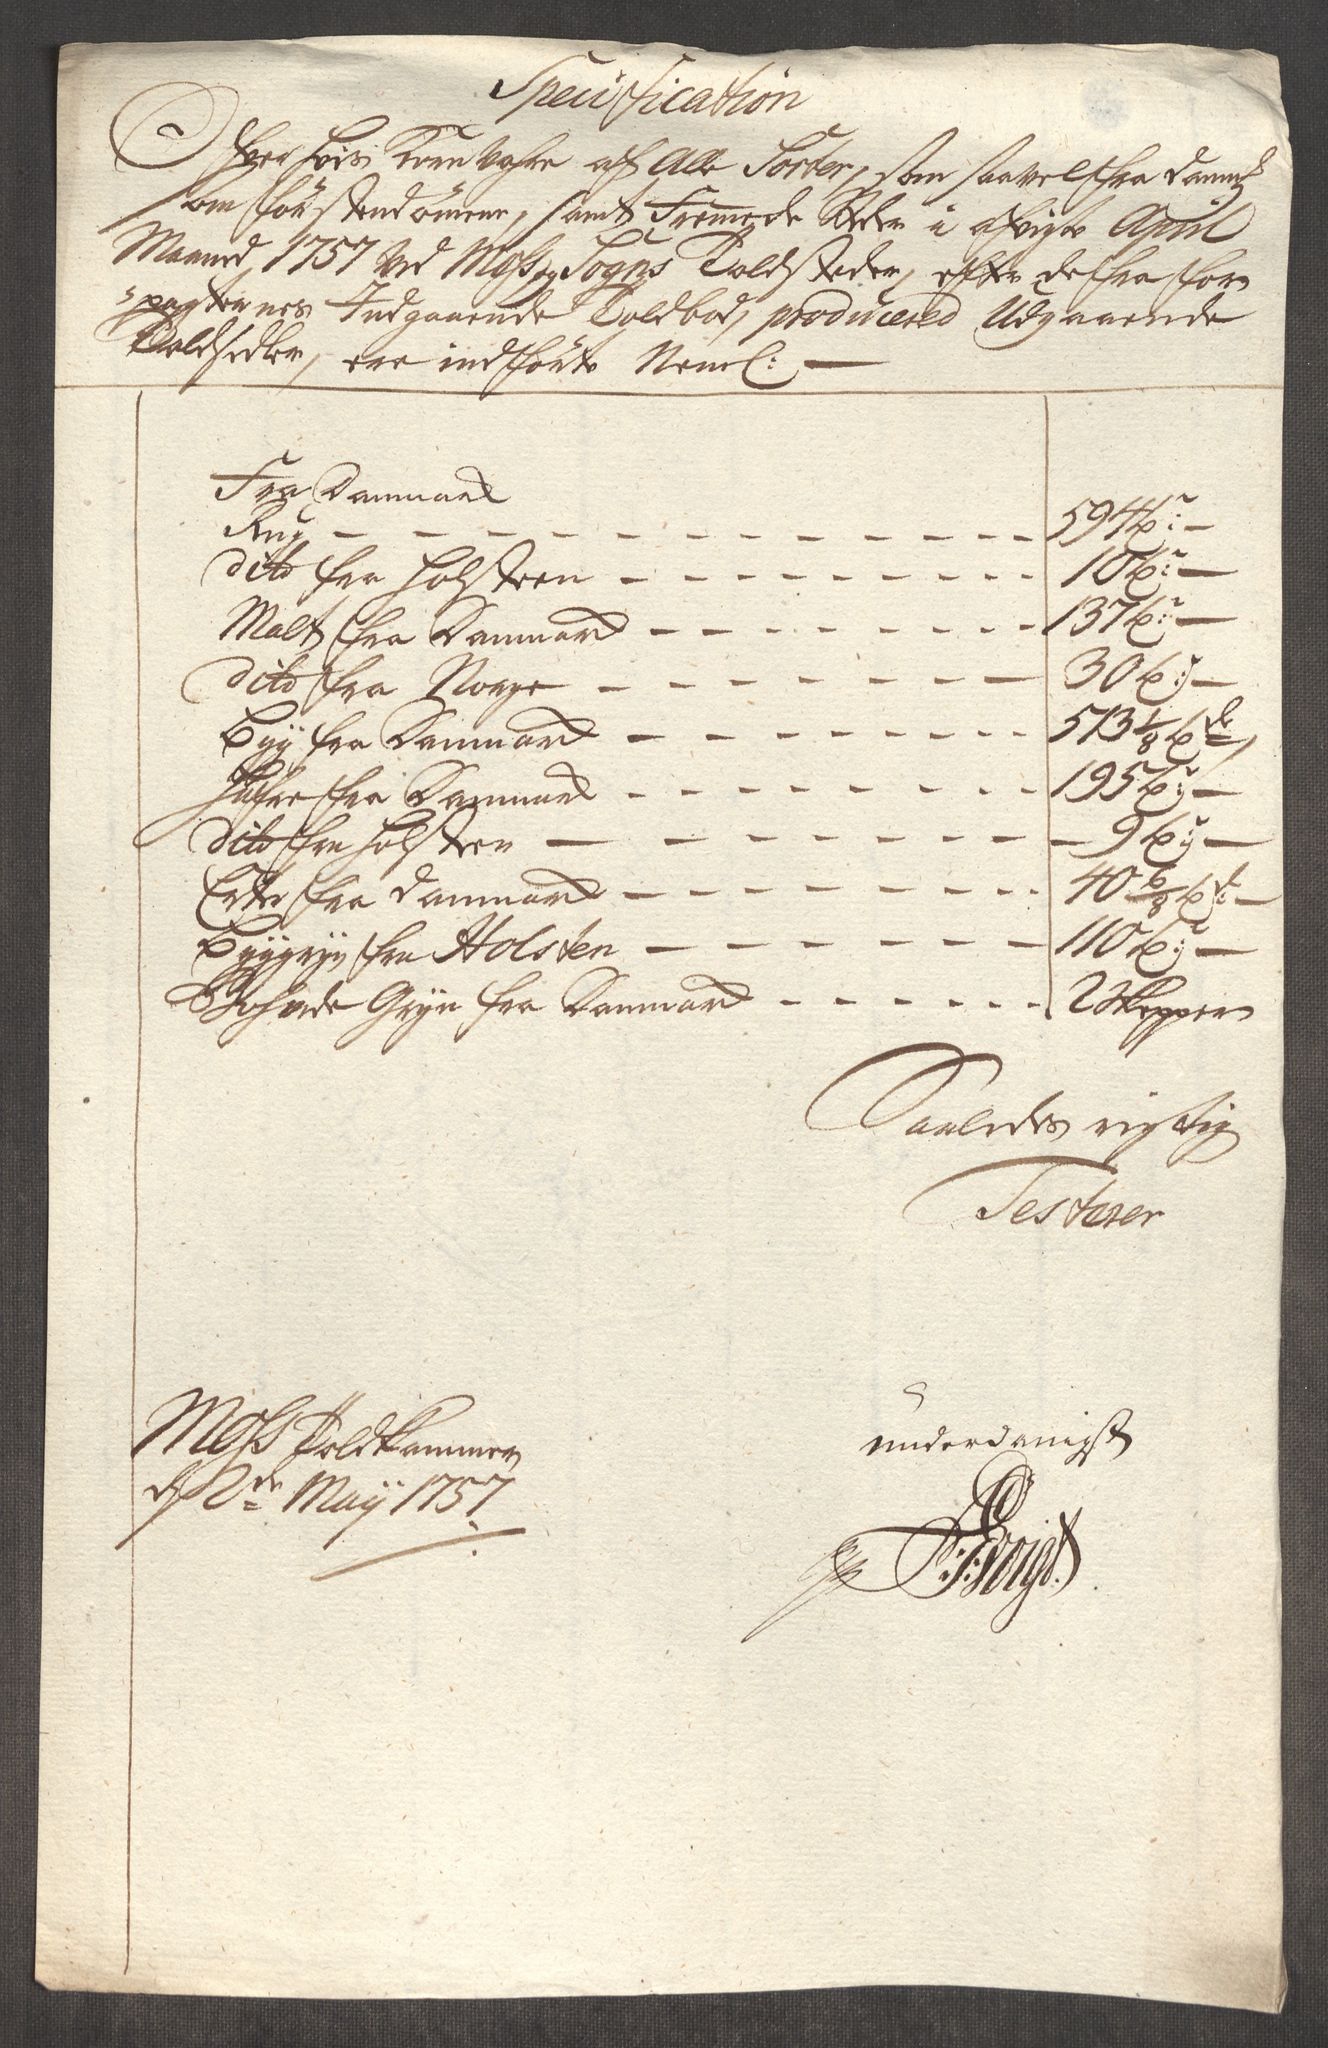 Specification
Over hvis Kornvahre af Alle Sorter, som saavel fra Danmk
som förstendömene, samt Fremmede Steder i afvigte April
Maaned 1757 ved Moss og Sogns Toldsteder, efter de fra for
pagternes Indgaaende Toldbod, producered Udgaaende
Toldsedler, ere indförte Neml:
Fra Danmark
Rug 594 tr:
dito fra Holsteen 10 tr:
Malt fra Danmark 137 tr:
dito fra Norge 30 tr:
Byg fra Danmark 513 1/8 tde
Hafre fra Danmark 195 tr:
dito fra Holsteen 9 tr:
Erter fra Danmark 40 6/8 td:
Byggryn fra Holsten 110 tr:
Boghvede Gryn fra Danmark 2 Skepper
Saaledes rigtig
Testerer
Moss Toldkammer
d 2de Maÿ 1757
underdanigst
Voigt